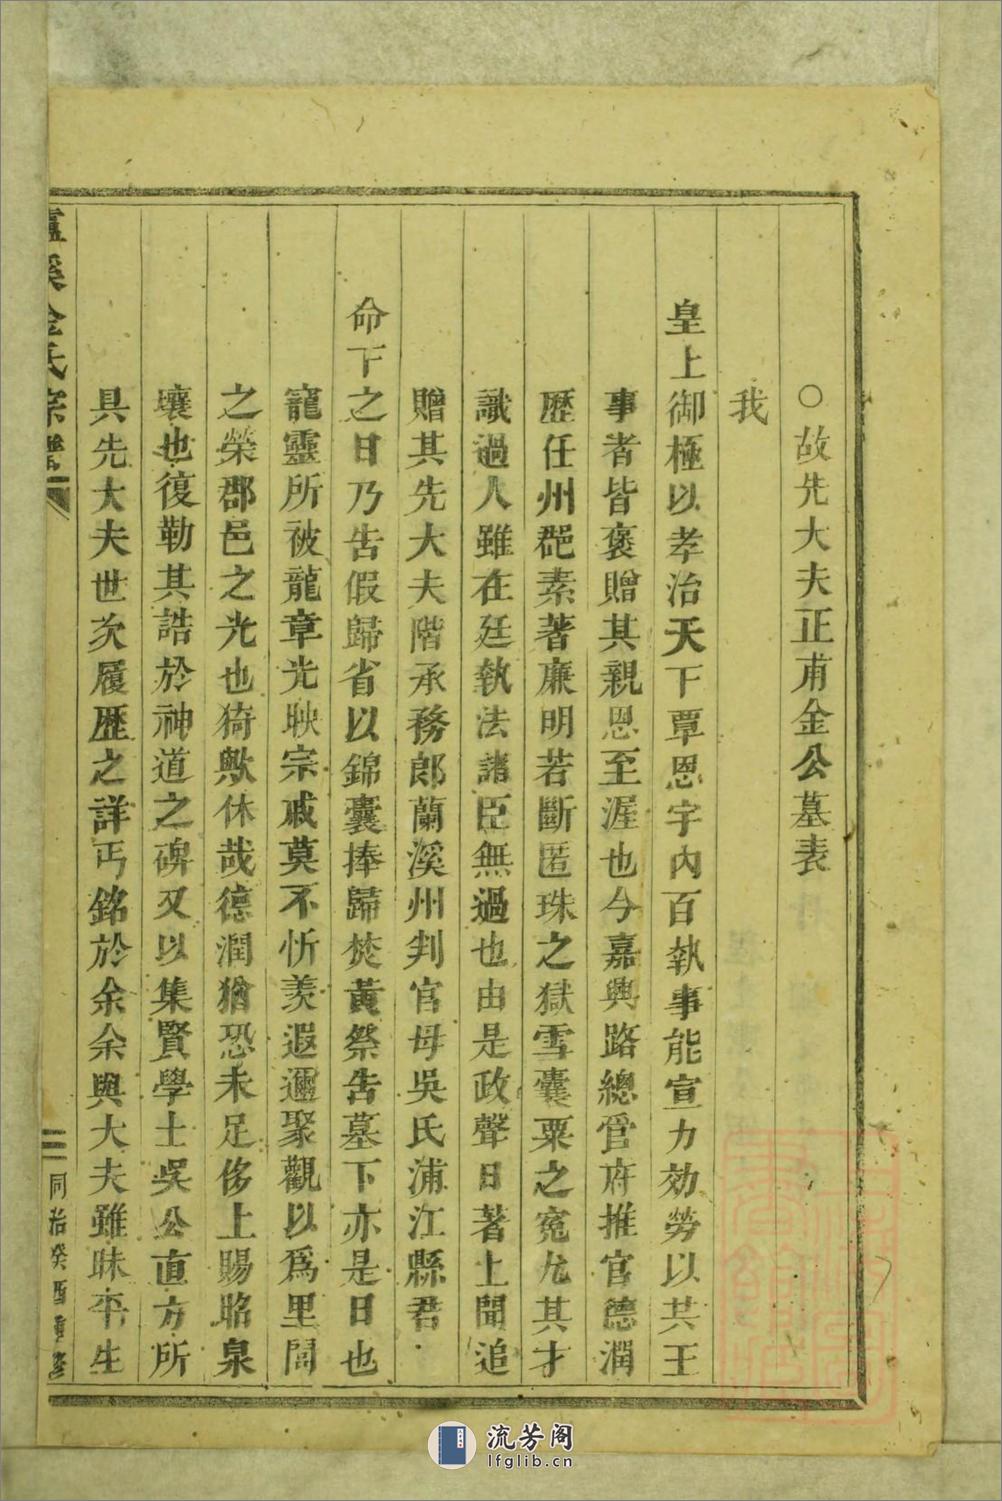 ○故先大夫正甫金公墓表
我
皇上御極以孝治天下覃恩宇內百執事能宣力効勞以共王
事者皆褒贈其親恩至渥也今嘉興路總管府推官德潤
歷任州郡素著廉明若斷匿珠之獄雪囊粟之寃尤其才
識過人雖在廷執法諸臣無過也由是政聲日著上聞追
贈其先大夫階承務郎蘭溪州判官母吳氏浦江縣君
命下之日乃告假歸省以錦囊捧歸焚黃祭告墓下亦是日也
寵靈所被龍章光映宗戚莫不忻羨遐邇聚觀以爲里閭
之榮郡邑之光也猗歟休哉德潤猶恐未足侈上賜昭泉
壤也復勒其誥於神道之碑又以集賢學士吳公直方所
具先大夫世次履歷之詳丐銘於余余與大夫雖昧平生
盧溪金氏宗譜
同治癸酉重修
流芳阁
lfglib.cn